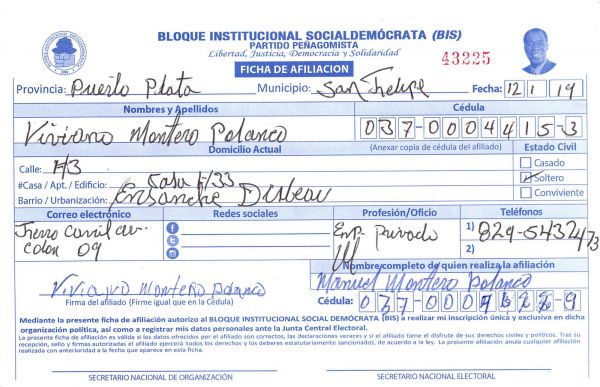 BLOQUE INSTITUCIONAL SOCIALDEMÓCRATA (BIS)
PARTIDO PEÑAGOMISTA
Libertad, Justicia, Democracia y Solidaridad
43225
FICHA DE AFILIACION
Provincia: Puerto Plata Municipio: San Felipe Fecha: 12 1 19
Nombres y Apellidos Cédula
Viviano Montero Polanco 037-0004415-3
Domicilio Actual (Anexar copia de cédula del afiliado) Estado Civil
Calle: #3 Casado
#Casa / Apt. / Edificio: Casa #33 Soltero
Barrio / Urbanización: Ensanche Dubeau Conviviente
Correo electrónico Redes sociales Profesión/Oficio Teléfonos
Ferro Carril av. Emp. Privado 1) 829-5432473
Colon 09 2)
Nombre completo de quien realiza la afiliación
Viviano Montero Polanco Manuel Montero Polanco
Firma del afiliado (Firme igual que en la Cédula) Cédula: 037-000
Mediante la presente ficha de afiliación autorizo al BLOQUE INSTITUCIONAL SOCIAL DEMÓCRATA (BIS) a realizar mi inscripción única y exclusiva en dicha
organización política, así como a registrar mis datos personales ante la Junta Central Electoral.
La presente ficha de afiliación es válida si los datos ofrecidos por el afiliado son correctos, las declaraciones veraces y si el afiliado tiene el disfrute de sus derechos civiles y políticos. Tras su
recepción, sello y firmas autorizadas el afiliado ejercerá todos los derechos y los deberes estatutariamente sancionados, de acuerdo a la ley. La presente afiliación anula cualquier afiliación
realizada con anterioridad a la fecha que aparece en esta ficha.
SECRETARIO NACIONAL DE ORGANIZACIÓN SECRETARIO NACIONAL ELECTORAL